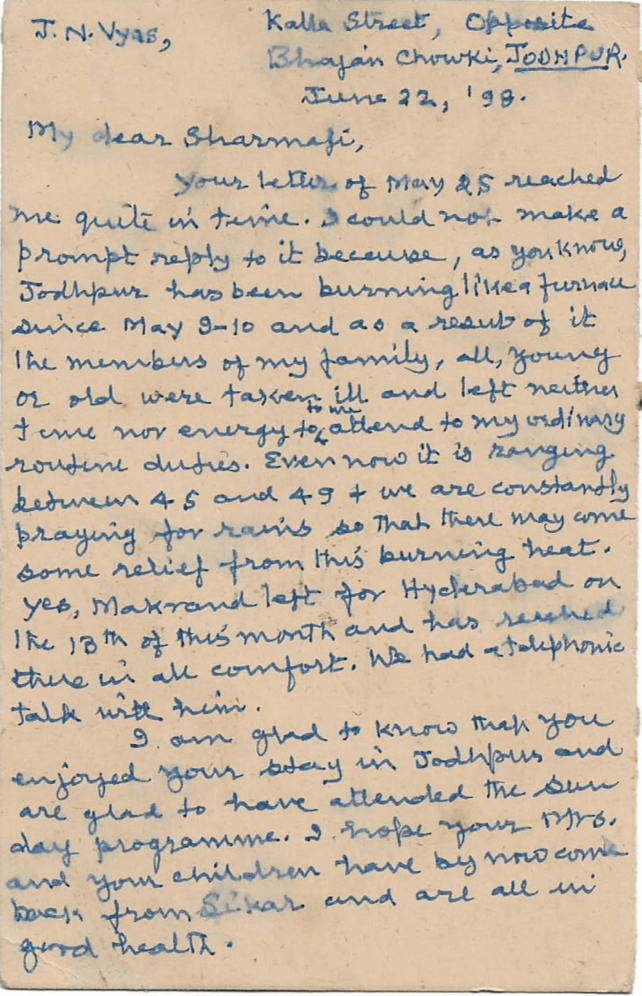 J. N. Vyas,
Kalla Street, Opposite
Bhajan Chowki, JODHPUR.
June 22, '98.
My dear Sharmaji,
Your letter of May 25 reached
me quite in time. I could not make a
prompt reply to it because, as you know,
Jodhpur has been burning like a furnace
since May 9-10 and as a result of it
the members of my family, all, young
or old were taken ill and left neither
time nor energy to me to attend to my ordinary
routine duties. Even now it is ranging
between 45 and 49 + we are constantly
praying for rains so that there may come
some relief from this burning heat.
Yes, Makrand left for Hyderabad on
the 13th of this month and has reached
there in all comfort. We had a telephonic
talk with him.
I am glad to know that you
enjoyed your stay in Jodhpur and
are glad to have attended the Sun
day programme. I hope your Mrs.
and your children have by now come
back from Sikar and are all in
good health.